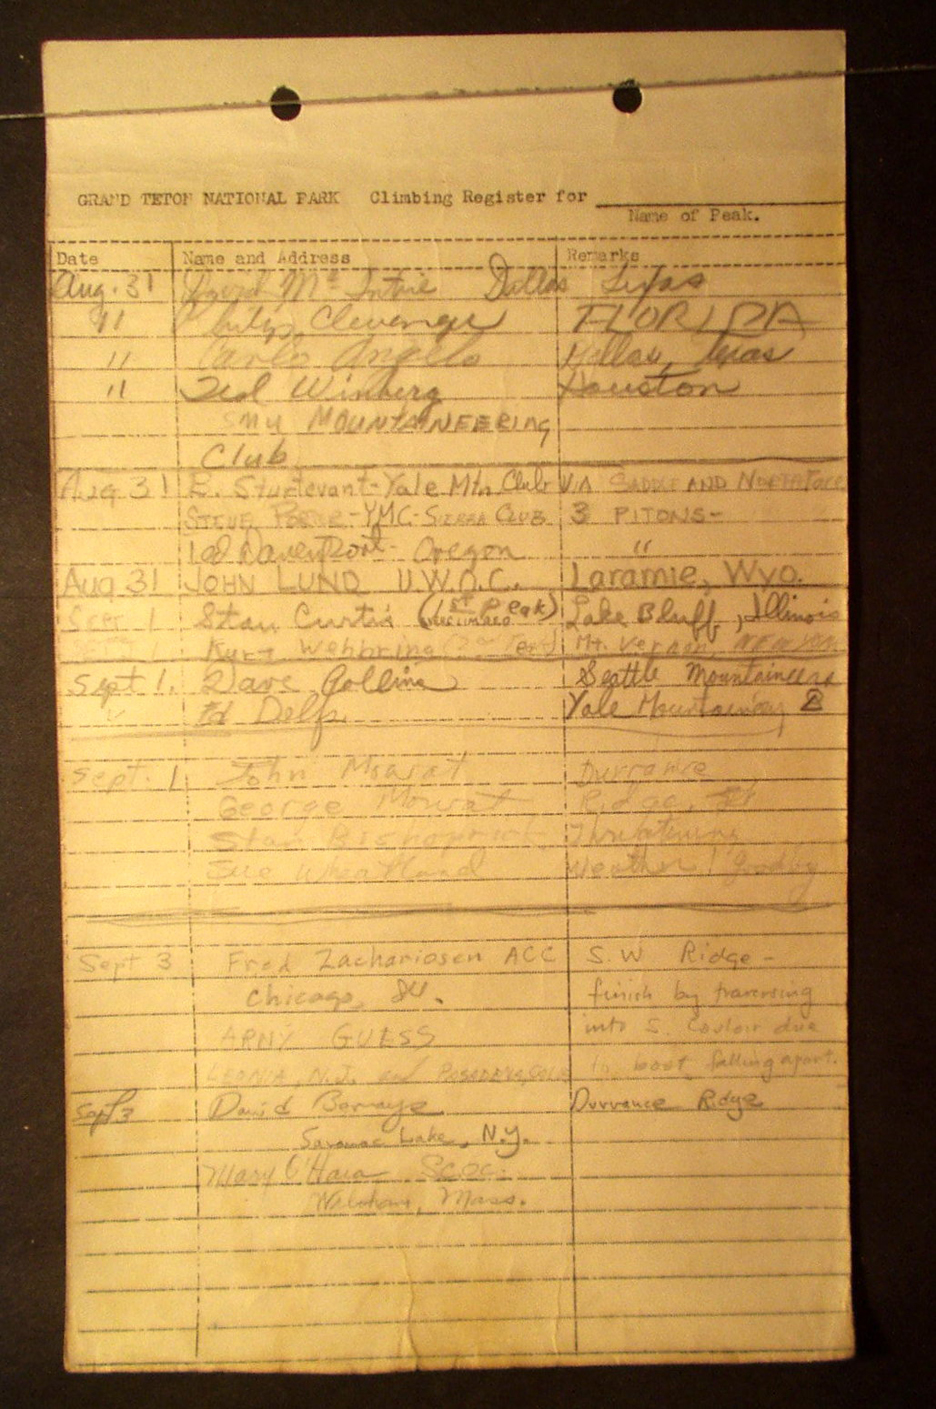 GRAND TETON NATIONAL PARK Climbing Register for
Name of Peak.
Date Name and Address Remarks
Aug. 31 David Mc Dallas Texas
" Clevenger FLORIDA
" Carlo Angelo Dallas, Texas
" Ted Winberg Houston
SMU MOUNTAINEERING
Club
Aug 31 B. Sturtevant - Yale Mtn. Club VIA SADDLE AND NORTH FACE
STEVE - YMC - SIERRA CLUB 3 PITONS -
Ted Davenport - Oregon "
Aug 31 JOHN LUND U.W.O.C. Laramie, Wyo.
Sept. 1 Stan Curtis (1st Peak) Lake Bluff, Illinois
Sept 1 Kurt Wehbring Mt. Vernon, New York
Sept 1. Dave Collins Seattle Mountaineers
" Ed Delp Yale Mountaineering
Sept. 1 John Mowat Durrance
George Mowat Ridge.
Stan Threatening
Sue Wheatland Weather! Goodby
Sept 3 Fred Zachariasen ACC S.W Ridge -
Chicago, Ill. finish by traversing
ARNY GUESS into S. Couloir due
LEONIA, N.J. and PASADENA, CALIF to boot falling apart.
Sept 3 David Bernays Durrance Ridge
Saranac Lake, N.Y.
Mary O'Hara
Waltham, Mass.